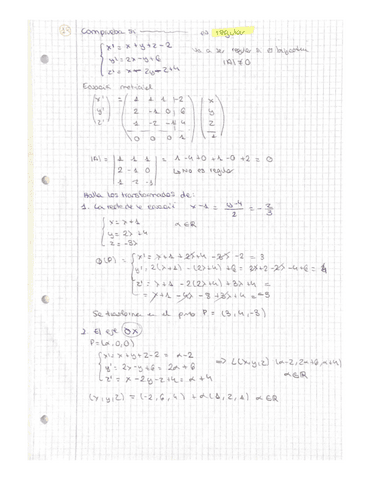 Comprueba si es regular
x' = x + y + z - 2
y' = 2x - y + 6
z' = x - 2y - z + 4
Va a ser regular si es biyectiva
|A| ≠ 0
Ecuación matricial
x' 1 1 1 -2 x
y' = 2 -1 0 6 y
z' 1 -2 -1 4 z
0 0 0 1 1
|A| = 1 1 1 = 1 - 4 + 0 + 1 - 0 + 2 = 0
2 -1 0 ↳ No es regular
1 -2 -1
Halla los transformados de:
1. La recta de ecuación x - 1 = y-4/2 = -z/3
x = λ + 1
y = 2λ + 4
z = -3λ
∈ ℝ
x' = λ + 1 + 2λ + 4 - 3λ - 2 = 3
y' = 2(λ+1) - (2λ+4) + 6 = 2λ + 2 - 2λ - 4 + 6 = 4
z' = λ + 1 - 2(2λ+4) + 3λ + 4 =
= λ + 1 - 4λ - 8 + 3λ + 4 = -3
Se transforma en el punto P = (3, 4, -3)
2. El eje OX
P = (α, 0, 0)
x' = x + y + z - 2 = α - 2
y' = 2x - y + 6 = 2α + 6
z' = x - 2y - z + 4 = α + 4
⇒ (x, y, z) (α-2, 2α+6, α+4)
α ∈ ℝ
(x, y, z) = (-2, 6, 4) + α(1, 2, 1) α ∈ ℝ